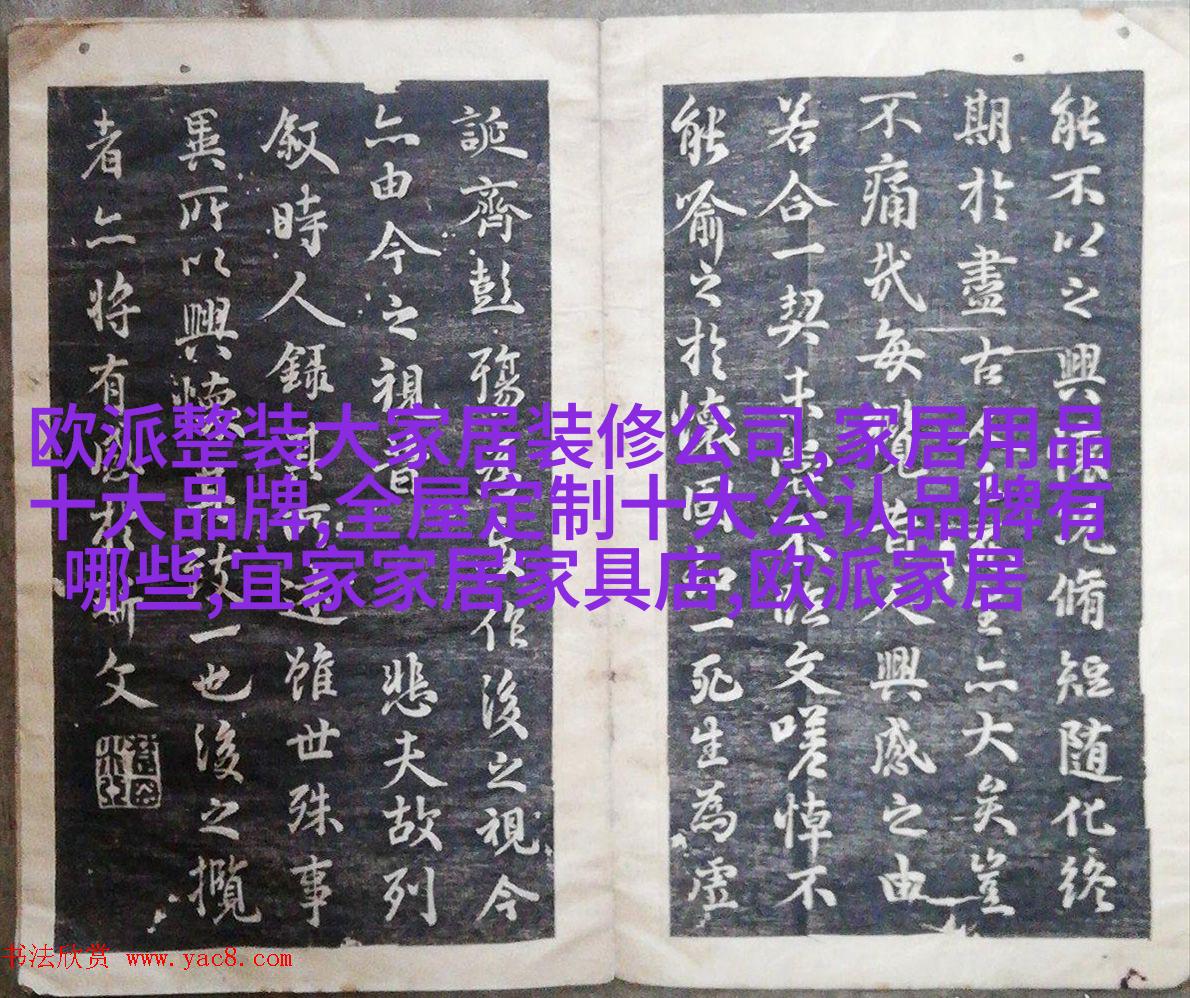 能不以之興懷況脩短随化終
期於盡古人云死生亦大矣豈
不痛哉每攬昔人興感之由
若合一契未嘗不臨文嗟悼不
能喻之於懷固知一死生為虛
誕齊彭殤為妄作後之視今
亦由今之視昔悲夫故列
敘時人錄其所述雖世殊事
異所以興懷其致一也後之攬
者亦將有感於斯文
欧派整装大家居装修公司,家居用品
十大品牌,全屋定制十大公认品牌有
哪些,宜家家居家具店,欧派家居
书法欣赏 www.yac8.com